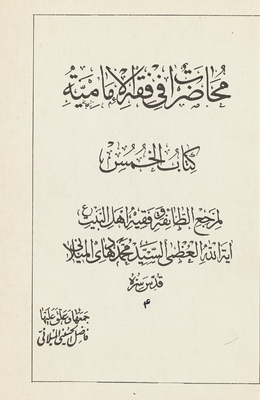 محاضرات في فقه الإمامية
كتاب الخمس
لمرجع الطائفة وفقيه اهل البيت ع
آية الله العظمى السيد محمد هادي الميلاني
قدس سره
۴
جمعها وعلق عليها
فاضل الحسيني الميلاني